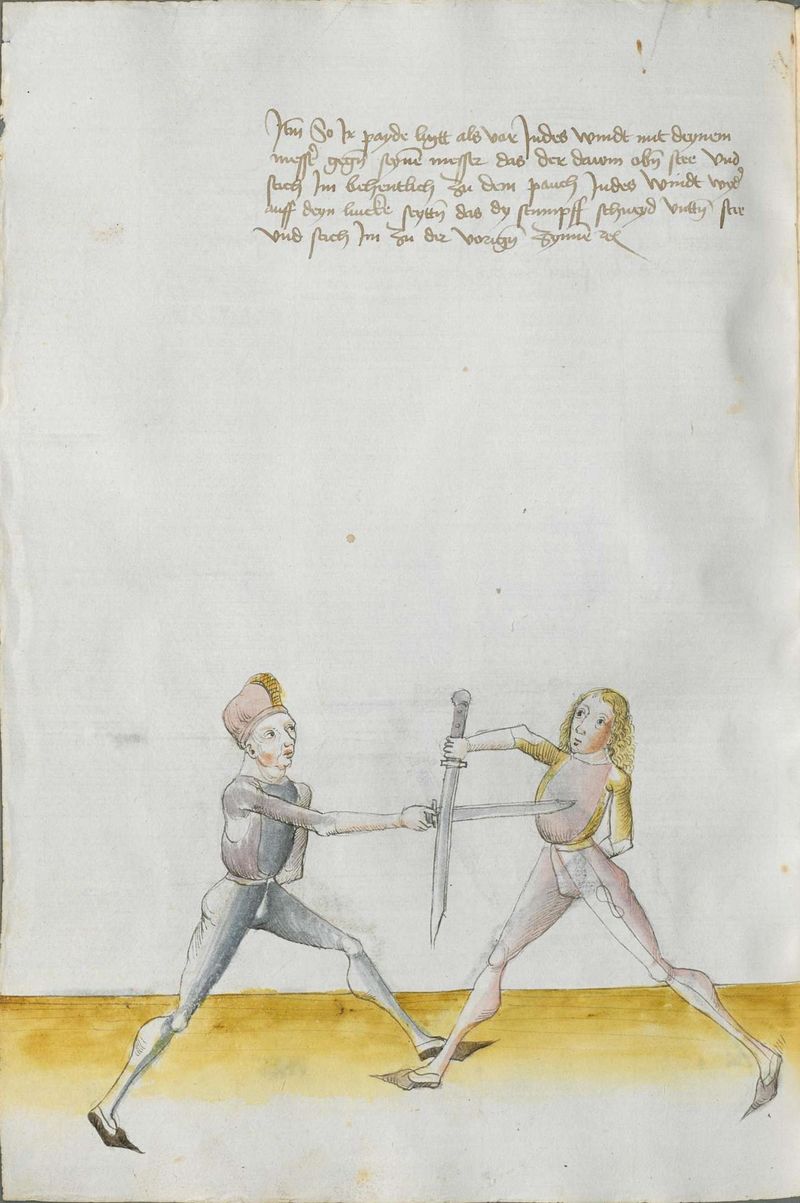 Itm̄ So Ir payde ligtt als vor Indes windt mit deynem
messer̄ gegn̄ seynē messer das der dawm obn̄ stee vnd
stich Im behentlich zu dem pauch Indes windt wyd̄er
auff deyn lincke seyttn̄ das dy stumpff schneyd vnttn̄ stee
vnd stich Im zu der vorign̄ zynnē